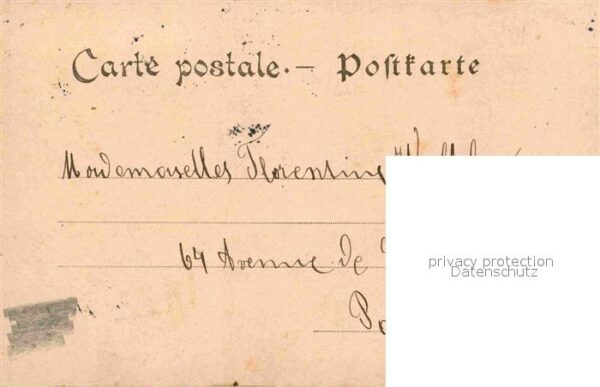 Carte postale.– Postkarte
Mademoiselles Florentine
64 Avenue de
privacy protection
Datenschutz